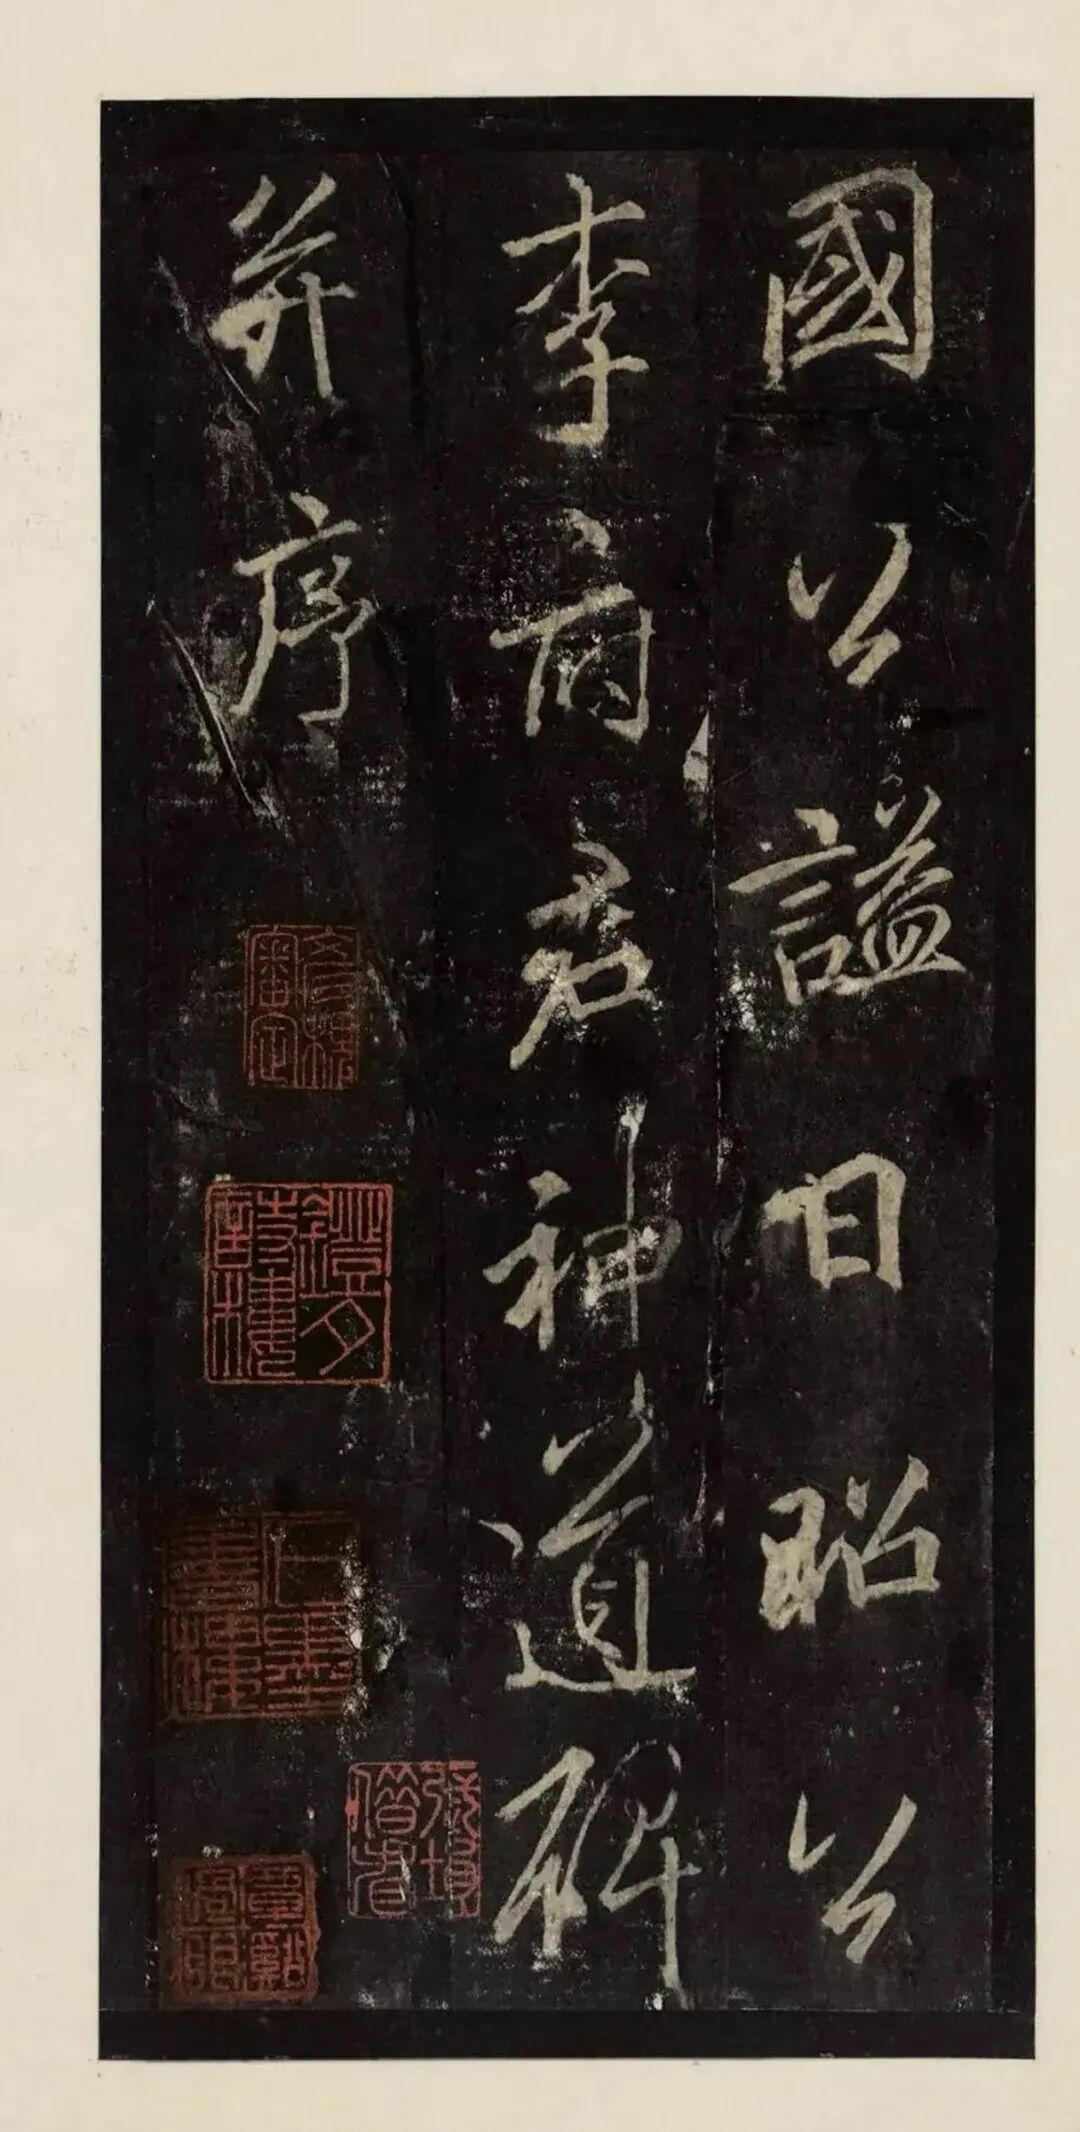 國公謚曰昭公
李府君神道碑
并序